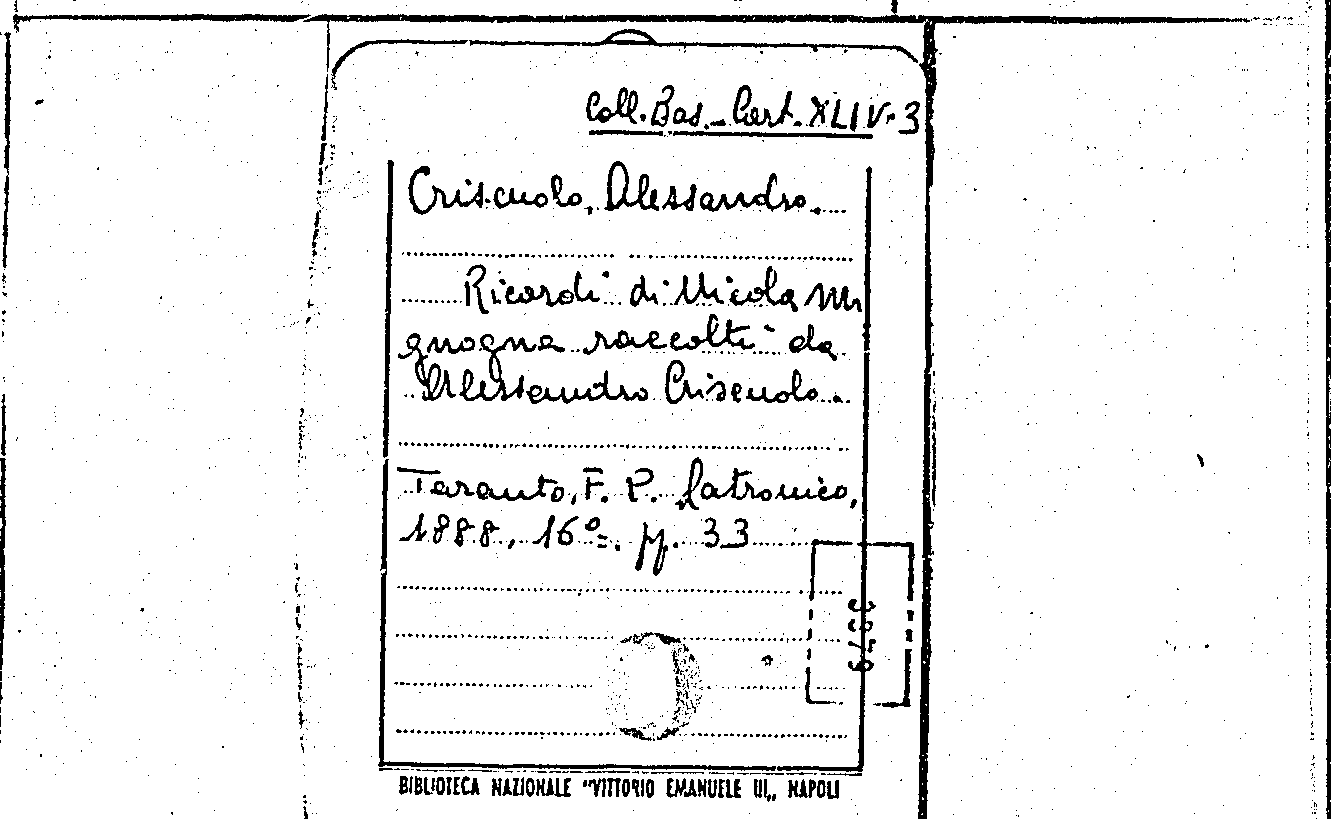 Coll. Bas. - Cart. XLIV-3
Criscuolo, Alessandro.
Ricordi di Nicola Mi
gnogna raccolti da
Alessandro Criscuolo.
Taranto, F. P. Latronico,
1888, 16º. pp. 33
BIBLIOTECA NAZIONALE "VITTORIO EMANUELE III„ NAPOLI